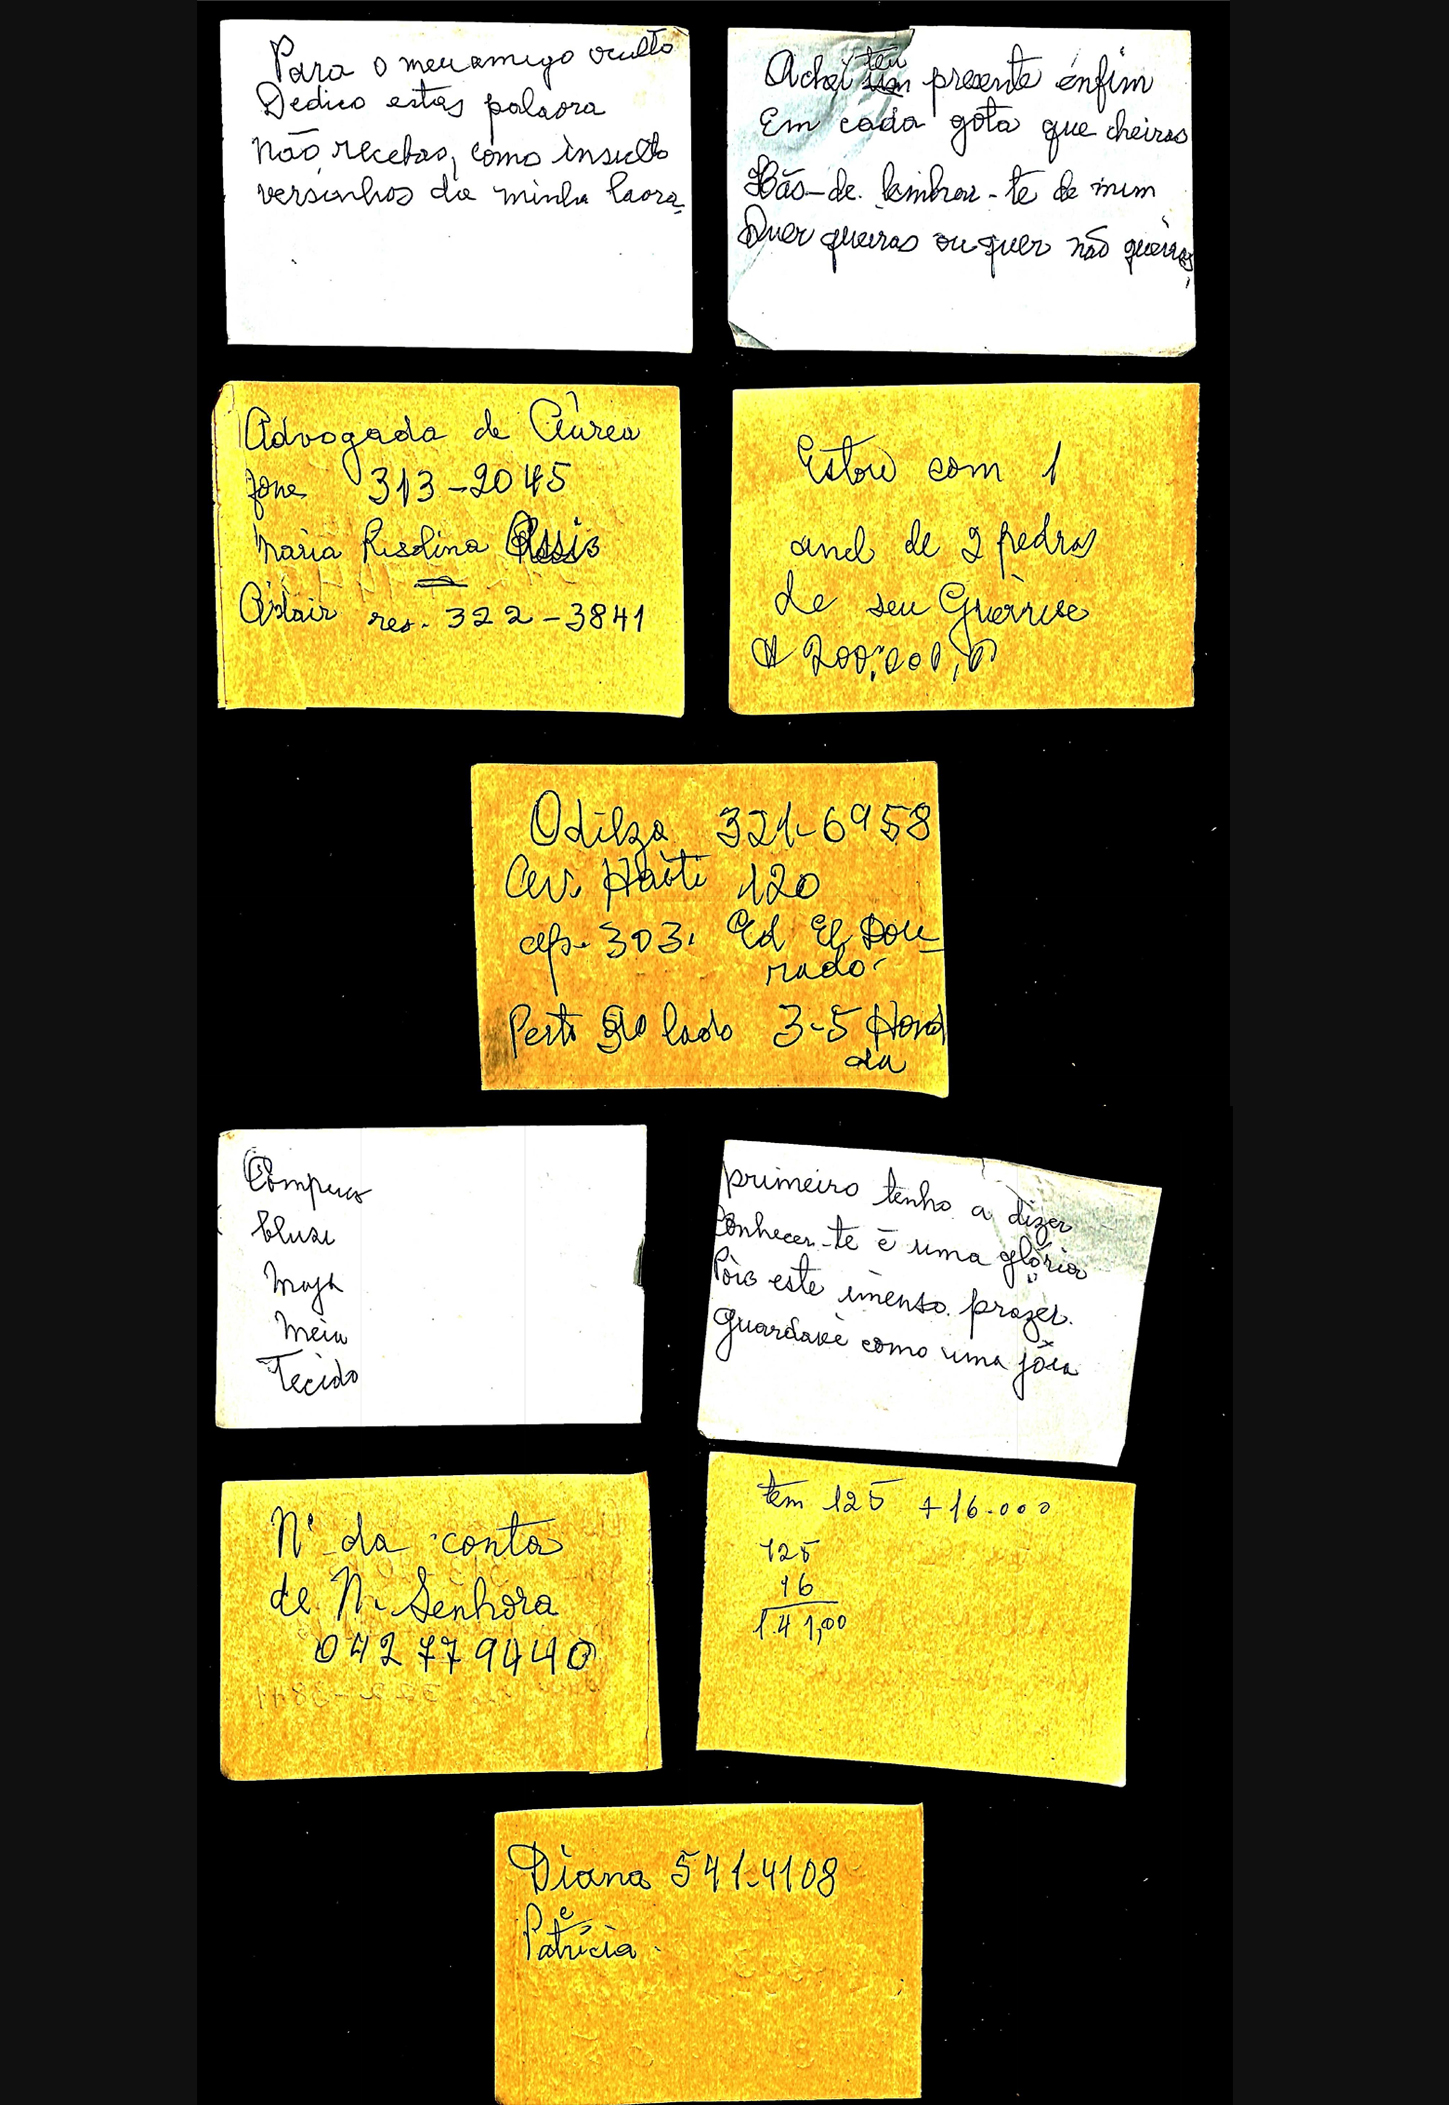 Para o meu amigo oculto
Dedico estas palavra
não recebas, como insulto
versinhos da minha lavra
Achei teu presente enfim
Em cada gota que cheiras
Hás-de lembrar-te de mim
Quer queiras ou quer não queiras,
Advogada de Áurea
fone 313-2045
Maria Risolina Assis
Adair res. 322-3841
Estou com 1
anel de 2 pedras
de seu
200.000,00
Odilza 321-6958
Av. Haiti 120
ap. 303. Ed El Dou
rado.
Perto do lado 3-5 Hon
da
Compras
blusa
Meia
Tecido
primeiro tenho a dizer
Conhecer-te é uma glória
Pois este imenso prazer.
Guardarei como uma jóia
Nº da conta
de N. Senhora
042779440
tem 125 +16.000
125
16
1.41,00
Diana 541-4108
e
Patrícia.